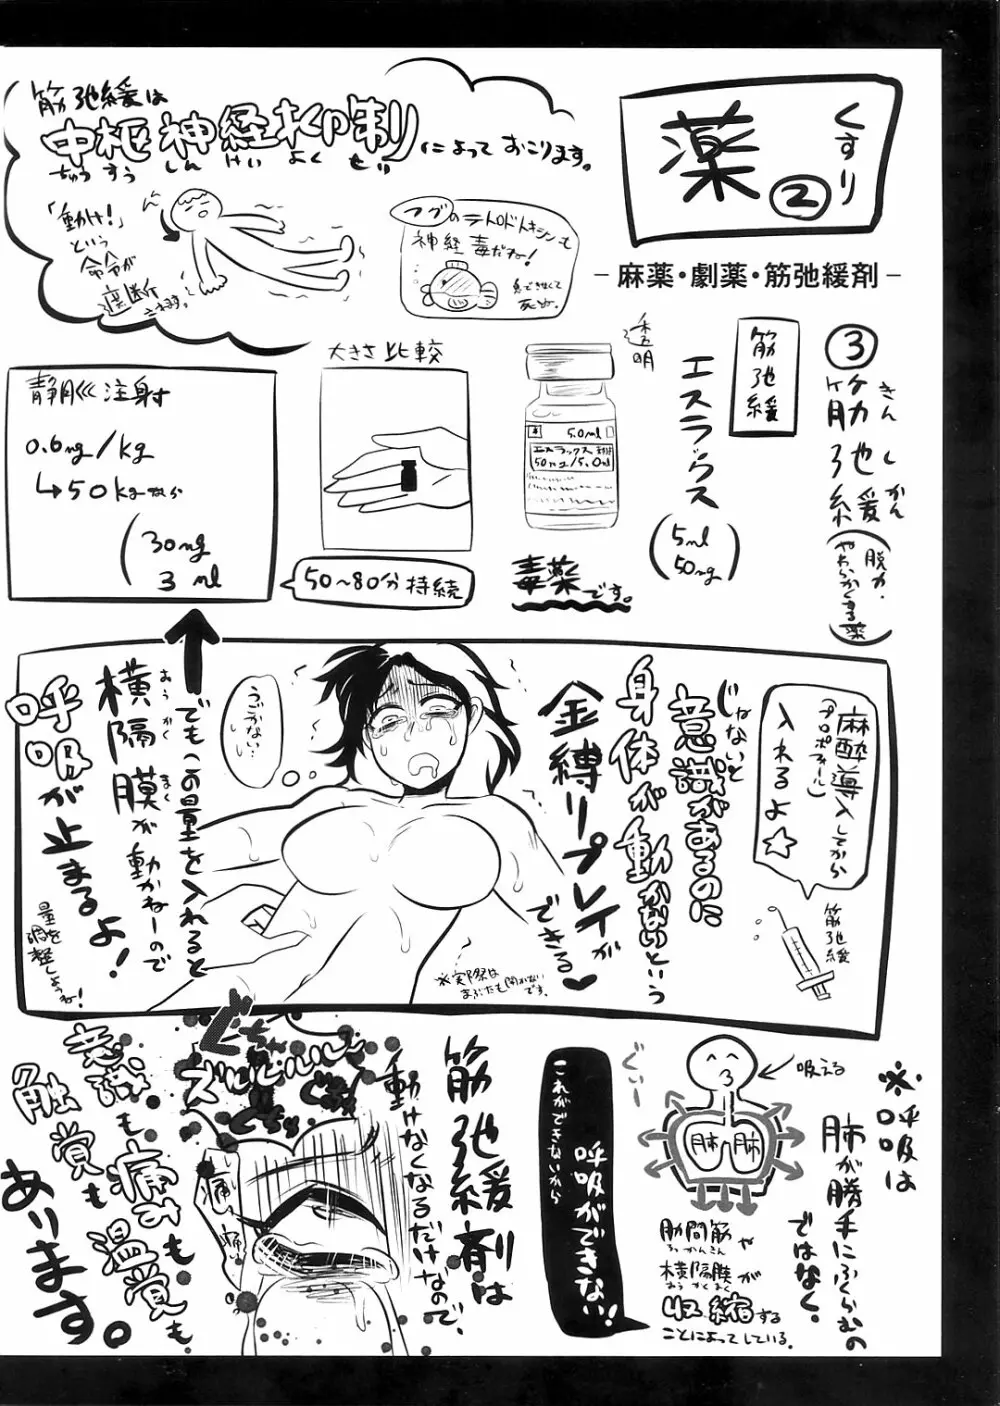 薬②
くすり
－麻薬・劇薬・筋弛緩剤－
③筋弛緩
きんしかん
(脱力・やわらかくする薬)
筋弛緩
エスラックス
(5ml 50mg)
透明
5.0ml
エスラックス
50mg/5.0ml
毒薬です。
大きさ比較
静脈注射
0.6mg/kg
↳50kgなら
(30mg 3ml)
50～80分持続
筋弛緩は
中枢神経抑制によっておこります。
ちゅうすうしんけいよくせい
ん
「動け!」という命令が遮断されます。
フグのテトロドトキシンも
神経毒だね!
息できなくて死ぬ。
麻酔導入してから
(プロポフォール)
入れるよ☆
筋弛緩
じゃないと
意識があるのに
身体が動かないという
金縛りプレイができる♥
※実際はまぶたも開かないです。
うごかない…
でもこの量を入れると
横隔膜が動かねーので
おうかくまく
呼吸が止まるよ!
量を調整しようね!
※呼吸は
肺が勝手にふくらむのではなく。
吸える
肺
肺
肋間筋や
ろっかんきん
横隔膜が
おうかくまく
収縮する
ことによってしている。
ぐぃー
これができないから
呼吸ができない!
筋弛緩剤は
動けなくなるだけなので、
意識も痛みも
触覚も温覚も
あります。